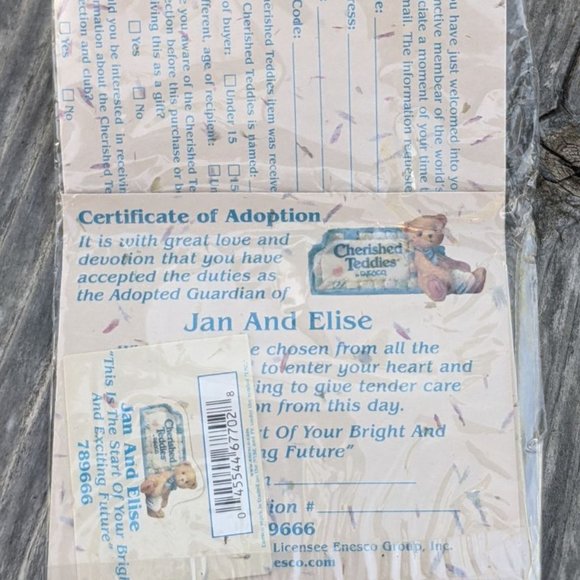 ou have just welcomed into yo
nctive membear of the world's
ciate a moment of your time t
mail. The information request
e:
ress:
Code:
Cherished Teddies item was receive
Cherished Teddies is named:
of buyer: ☐ Under 15 ☐ 15
fferent, age of recipient: ☐ Un
e you aware of the Cherished Te
ection before this purchase or be
eiving this as a gift?
☐ Yes ☐ No
ld you be interested in receivin
rmation about the Cherished Te
ection and club?
☐ Yes ☐ No
Certificate of Adoption
It is with great love and
devotion that you have
accepted the duties as
the Adopted Guardian of
Cherished
Teddies
ENESCO
Jan And Elise
e chosen from all the
to enter your heart and
ing to give tender care
on from this day.
t Of Your Bright And
ng Future"
n
ion #
9666
Licensee Enesco Group, Inc.
esco.com
Jan And Elise
"This Is The Start Of Your Brigh
And Exciting Future"
789666
Cherished
Teddies
0 45544 67702 8